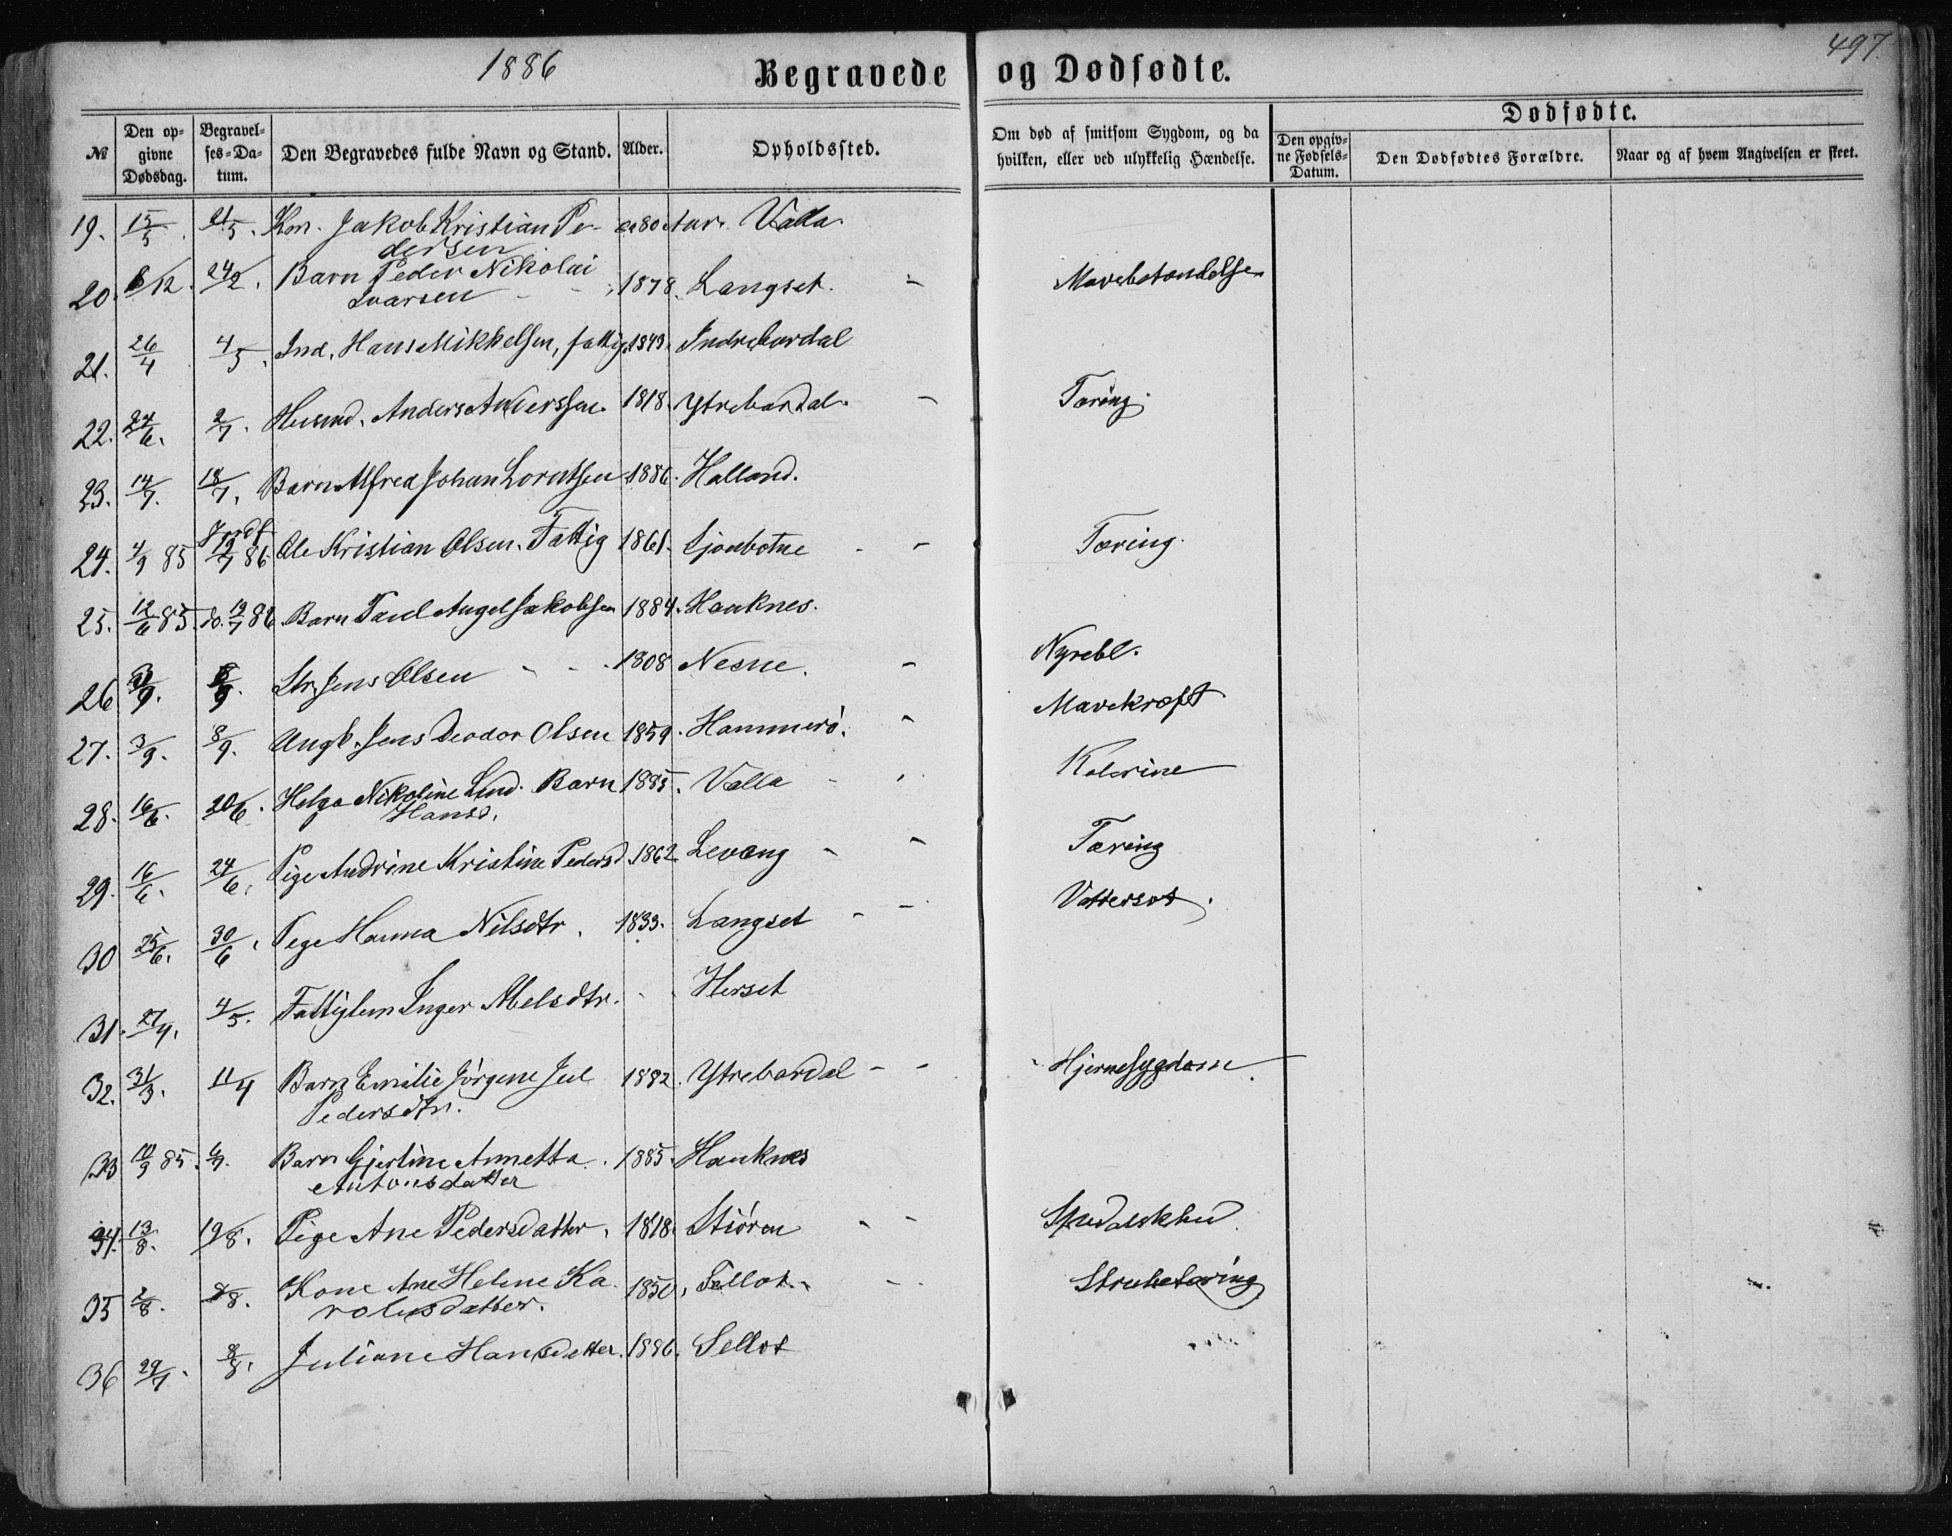 1886 Begravede og Dødfødte. 497.
Dødfødte.
№ Den opgivne Dødsdag. Begravelses-Datum. Den Begravedes fulde Navn og Stand. Alder. Opholdssted. Om død af smitsom Sygdom, og da hvilken, eller ved ulykkelig Hændelse. Den opgivne Fødsels-Datum. Den Dødfødtes Forældre. Naar og af hvem Angivelsen er skeet.
19. 15/5. 21/5. Km. Jakob Kristian Pe- ca 80 Aar. Valla
dersen
20. 8/12. 24/2. Barn Peder Nikolai 1878. Langset. - Mavebetændelse
Ivarsen
21. 26/4 4/5. Ind. Hans Mikkelsen, fattig. 1843. Indrebardal
22. 24/6. 2/7. Husmd. Anders Anderssen. 1818. Ytrebardal. - Tæring.
23. 14/7. 18/7. Barn Alfred Johan Lorntsen 1886. Halland.
24. 4/9 85 Jordf. 12/7 86 Ole Kristian Olsen. Fattig 1861. Sjonbotne - - Tæring.
25. 12/6 85. do. 12/7 86. Barn Paul Angel Jakobsen 1884. Hauknes.
26 /9. 8/9. Str. Jens Olsen - - 1808 Nesne. - Nyrebl.
27. 3/9. 8/9. Ungk. Jens Deodor Olsen 1859. Hammerö. - Mavekræft
28. 16/6. 20/6. Helga Nikoline Lind. Barn 1885. Valla - Kolerine
Hansd.
29. 16/6. 24/6. Pige Andrine Kristine Pedersd. 1862 Levang - - Tæring
30 25/6. 30/6. Pige Hanna Nilsdtr. 1833. Langset - - Vattersot.
31. 27/4. 4/5. Fattiglem Inger Abelsdtr. - Herset
32. 31/3. 11/4 Barn Emilie Jörgine Jul 1882. Ytrebardal - - Hjernesygdom
Pedersdtr.
33 10/9 85. 6/9. Barn Gjertine Annetta 1885. Hauknes
Antonsdatter
34. 13/8. 19/8. Pige Ane Pedersdatter. 1818. Stiören - - Spedalskhed.
35 2/8. 8/8. Kone Ane Helene Ka- 1850. Sellot. - Strubetæring
rolusdatter.
36 29/7. 8/8. Juliane Hansdatter. 1886. Sellot